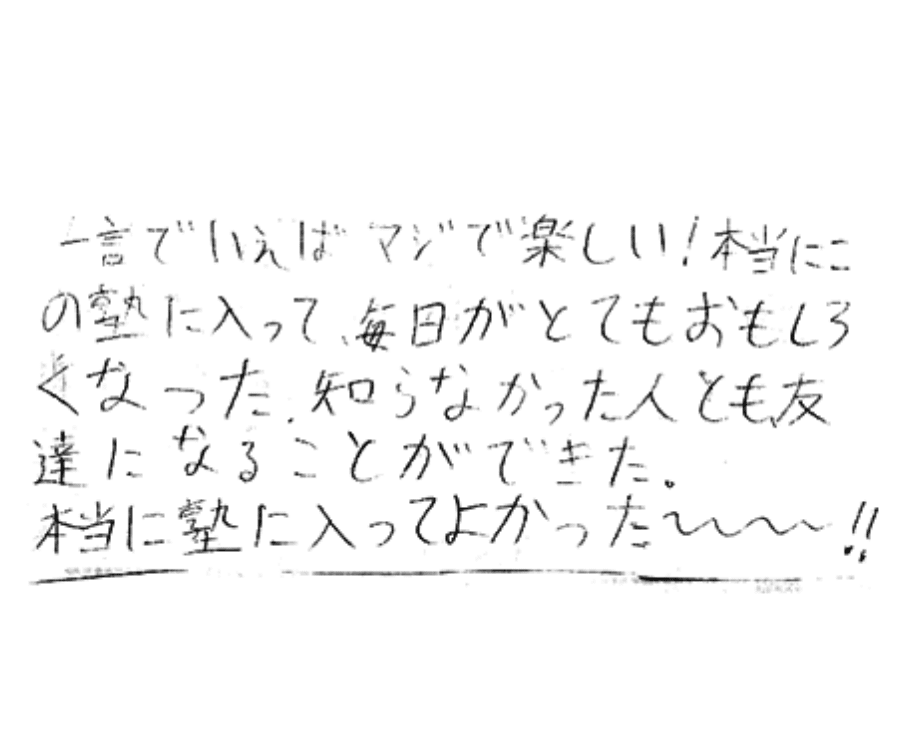 一言でいえばマジで楽しい!本当にこ
の塾に入って、毎日がとてもおもしろ
くなった。知らなかった人とも友
達になることができた。
本当に塾に入ってよかった〜〜〜!!